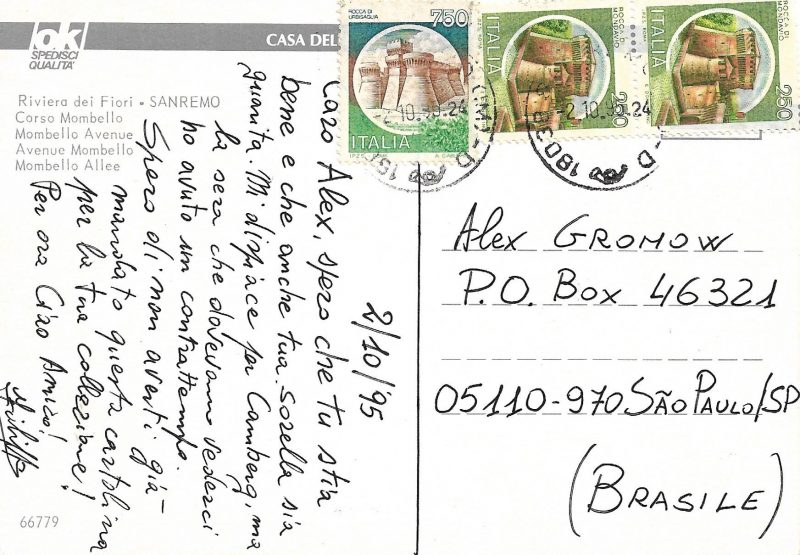 ok
SPEDISCI
QUALITA'
CASA DEL
Riviera dei Fiori - SANREMO
Corso Mombello
Mombello Avenue
Avenue Mombello
Mombello Allee
2/10/'95
Caro Alex, spero che tu stia
bene e che anche tua sorella sia
guarita. Mi dispiace per Camberg, ma
la sera che dovevamo vederci
ho avuto un contrattempo.
Spero di non averti già
mandato questa cartolina
per la tua collezione!
Per ora Ciao Amico!
66779
ROCCA DI
URBISAGLIA
750
ITALIA
ROCCA DI
MONDAVIO
250
ITALIA
ROCCA DI
MONDAVIO
250
ITALIA
Alex GROMOW
P.O. Box 46321
05110-970 SÃO PAULO/SP
(BRASILE)